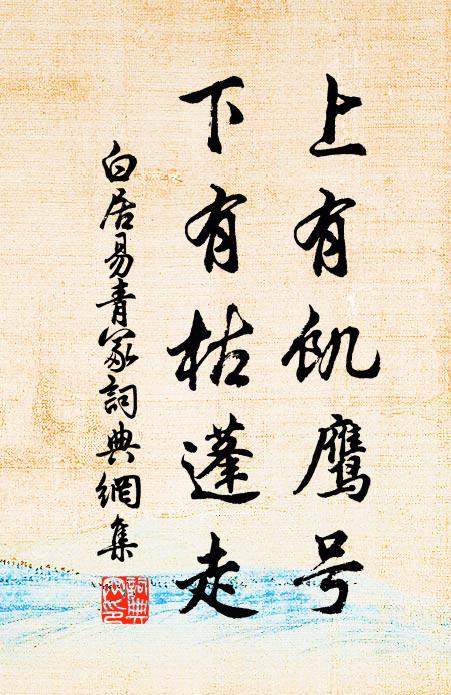 上有飢鷹号
下有枯蓬走
白居易青冢詞典網集